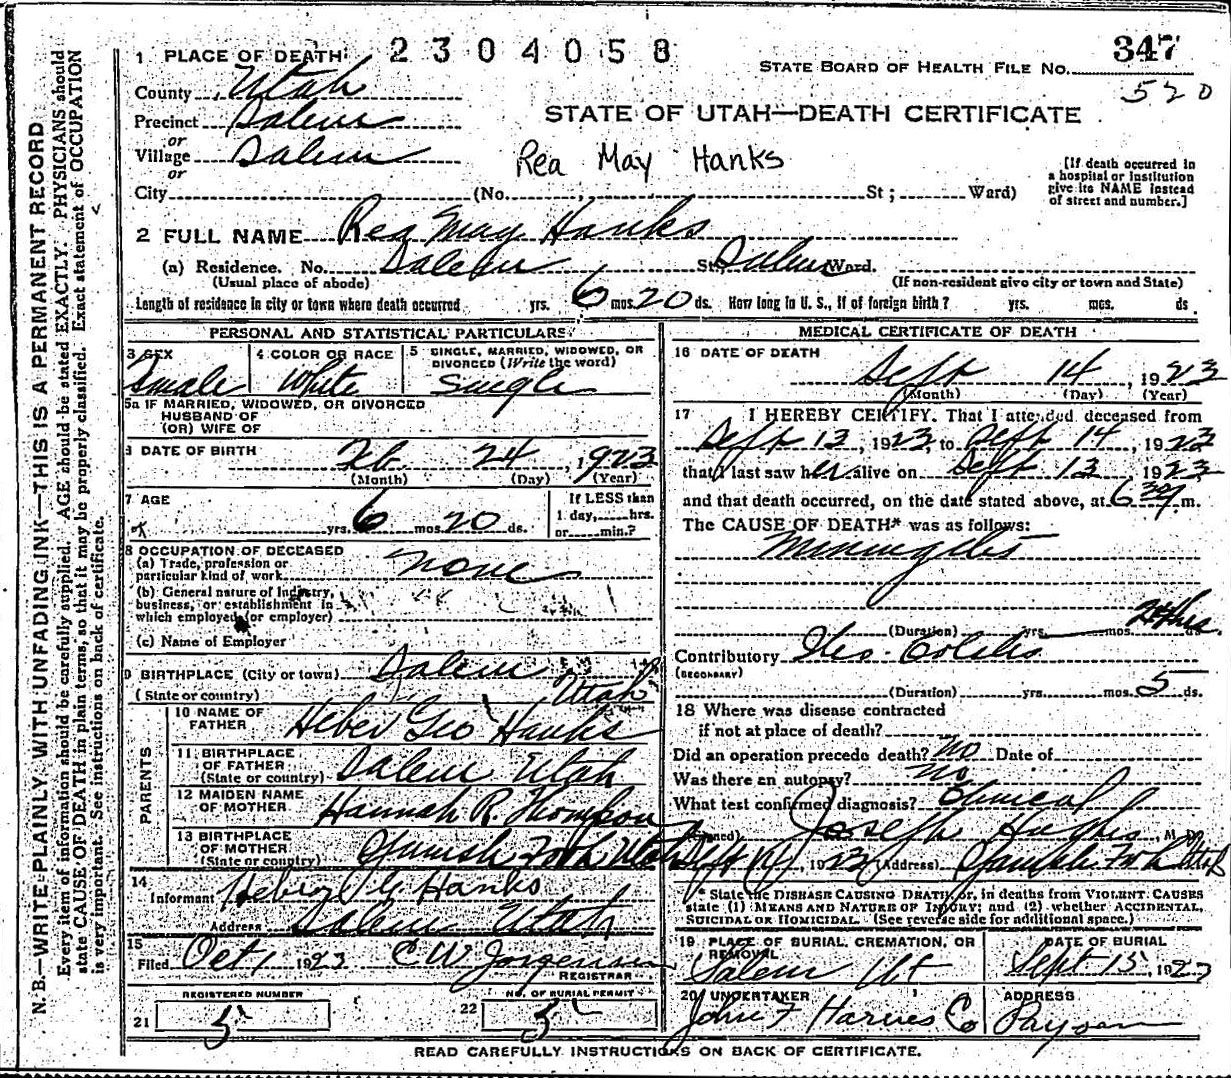 N. B.—WRITE PLAINLY, WITH UNFADING INK—THIS IS A PERMANENT RECORD
Every item of information should be carefully supplied. AGE should be stated EXACTLY. PHYSICIANS should
state CAUSE OF DEATH in plain terms, so that it may be properly classified. Exact statement of OCCUPATION
is very important. See instructions on back of certificate.
1 PLACE OF DEATH 2304058
STATE BOARD OF HEALTH FILE NO. 347
520
County Utah
Precinct Salem
STATE OF UTAH—DEATH CERTIFICATE
or
Village Salem
Rea May Hanks
or
City (No. St; Ward)
[If death occurred in
a hospital or institution
give its NAME instead
of street and number.]
2 FULL NAME Rea May Hanks
(a) Residence. No. Salem St. Salem Ward.
(Usual place of abode) (If non-resident give city or town and State)
Length of residence in city or town where death occurred yrs. 6 mos. 20 ds. How long in U. S., if of foreign birth? yrs. mos. ds
PERSONAL AND STATISTICAL PARTICULARS
3 SEX 4 COLOR OR RACE 5 SINGLE, MARRIED, WIDOWED, OR
DIVORCED (Write the word)
Female White Single
5a IF MARRIED, WIDOWED, OR DIVORCED
HUSBAND OF
(OR) WIFE OF
6 DATE OF BIRTH
Feb 24, 1923
(Month) (Day) (Year)
7 AGE If LESS than
1 day, hrs.
yrs. 6 mos. 20 ds. or min.?
8 OCCUPATION OF DECEASED
(a) Trade, profession or
particular kind of work none
(b) General nature of Industry,
business, or establishment in
which employed (or employer)
(c) Name of Employer
9 BIRTHPLACE (City or town) Salem
(State or country) Utah
PARENTS
10 NAME OF
FATHER Heber Geo Hanks
11 BIRTHPLACE
OF FATHER
(State or country) Salem Utah
12 MAIDEN NAME
OF MOTHER Hannah R. Thompson
13 BIRTHPLACE
OF MOTHER
(State or country) Spanish Fork Utah
14
Informant Heber G Hanks
Address Salem Utah
15
Filed Oct 1 1923 C W Jorgensen
REGISTRAR
REGISTERED NUMBER NO. OF BURIAL PERMIT
21 5 22 5
MEDICAL CERTIFICATE OF DEATH
16 DATE OF DEATH
Sept 14, 1923
(Month) (Day) (Year)
17 I HEREBY CERTIFY, That I attended deceased from
Sept 13, 1923, to Sept 14, 1923
that I last saw her alive on Sept 13 1923
and that death occurred, on the date stated above, at 6 30 m.
The CAUSE OF DEATH* was as follows:
Miningites
(Duration) yrs. mos. 24 hrs. ds
Contributory Ileo-Colitis
(SECONDARY)
(Duration) yrs. mos. 5 ds.
18 Where was disease contracted
if not at place of death?
Did an operation precede death? no Date of
Was there an autopsy? no
What test confirmed diagnosis? Clinical
(Signed) Joseph Hughes, M D
Sept 14, 1923 (Address) Spanish Fork Utah
* State the DISEASE CAUSING DEATH, or, in deaths from VIOLENT CAUSES
state (1) MEANS AND NATURE OF INJURY; and (2) whether ACCIDENTAL,
SUICIDAL OR HOMICIDAL. (See reverse side for additional space.)
19 PLACE OF BURIAL, CREMATION, OR
REMOVAL DATE OF BURIAL
Salem Ut Sept 15, 1923
20 UNDERTAKER ADDRESS
John F Co Payson
READ CAREFULLY INSTRUCTIONS ON BACK OF CERTIFICATE.